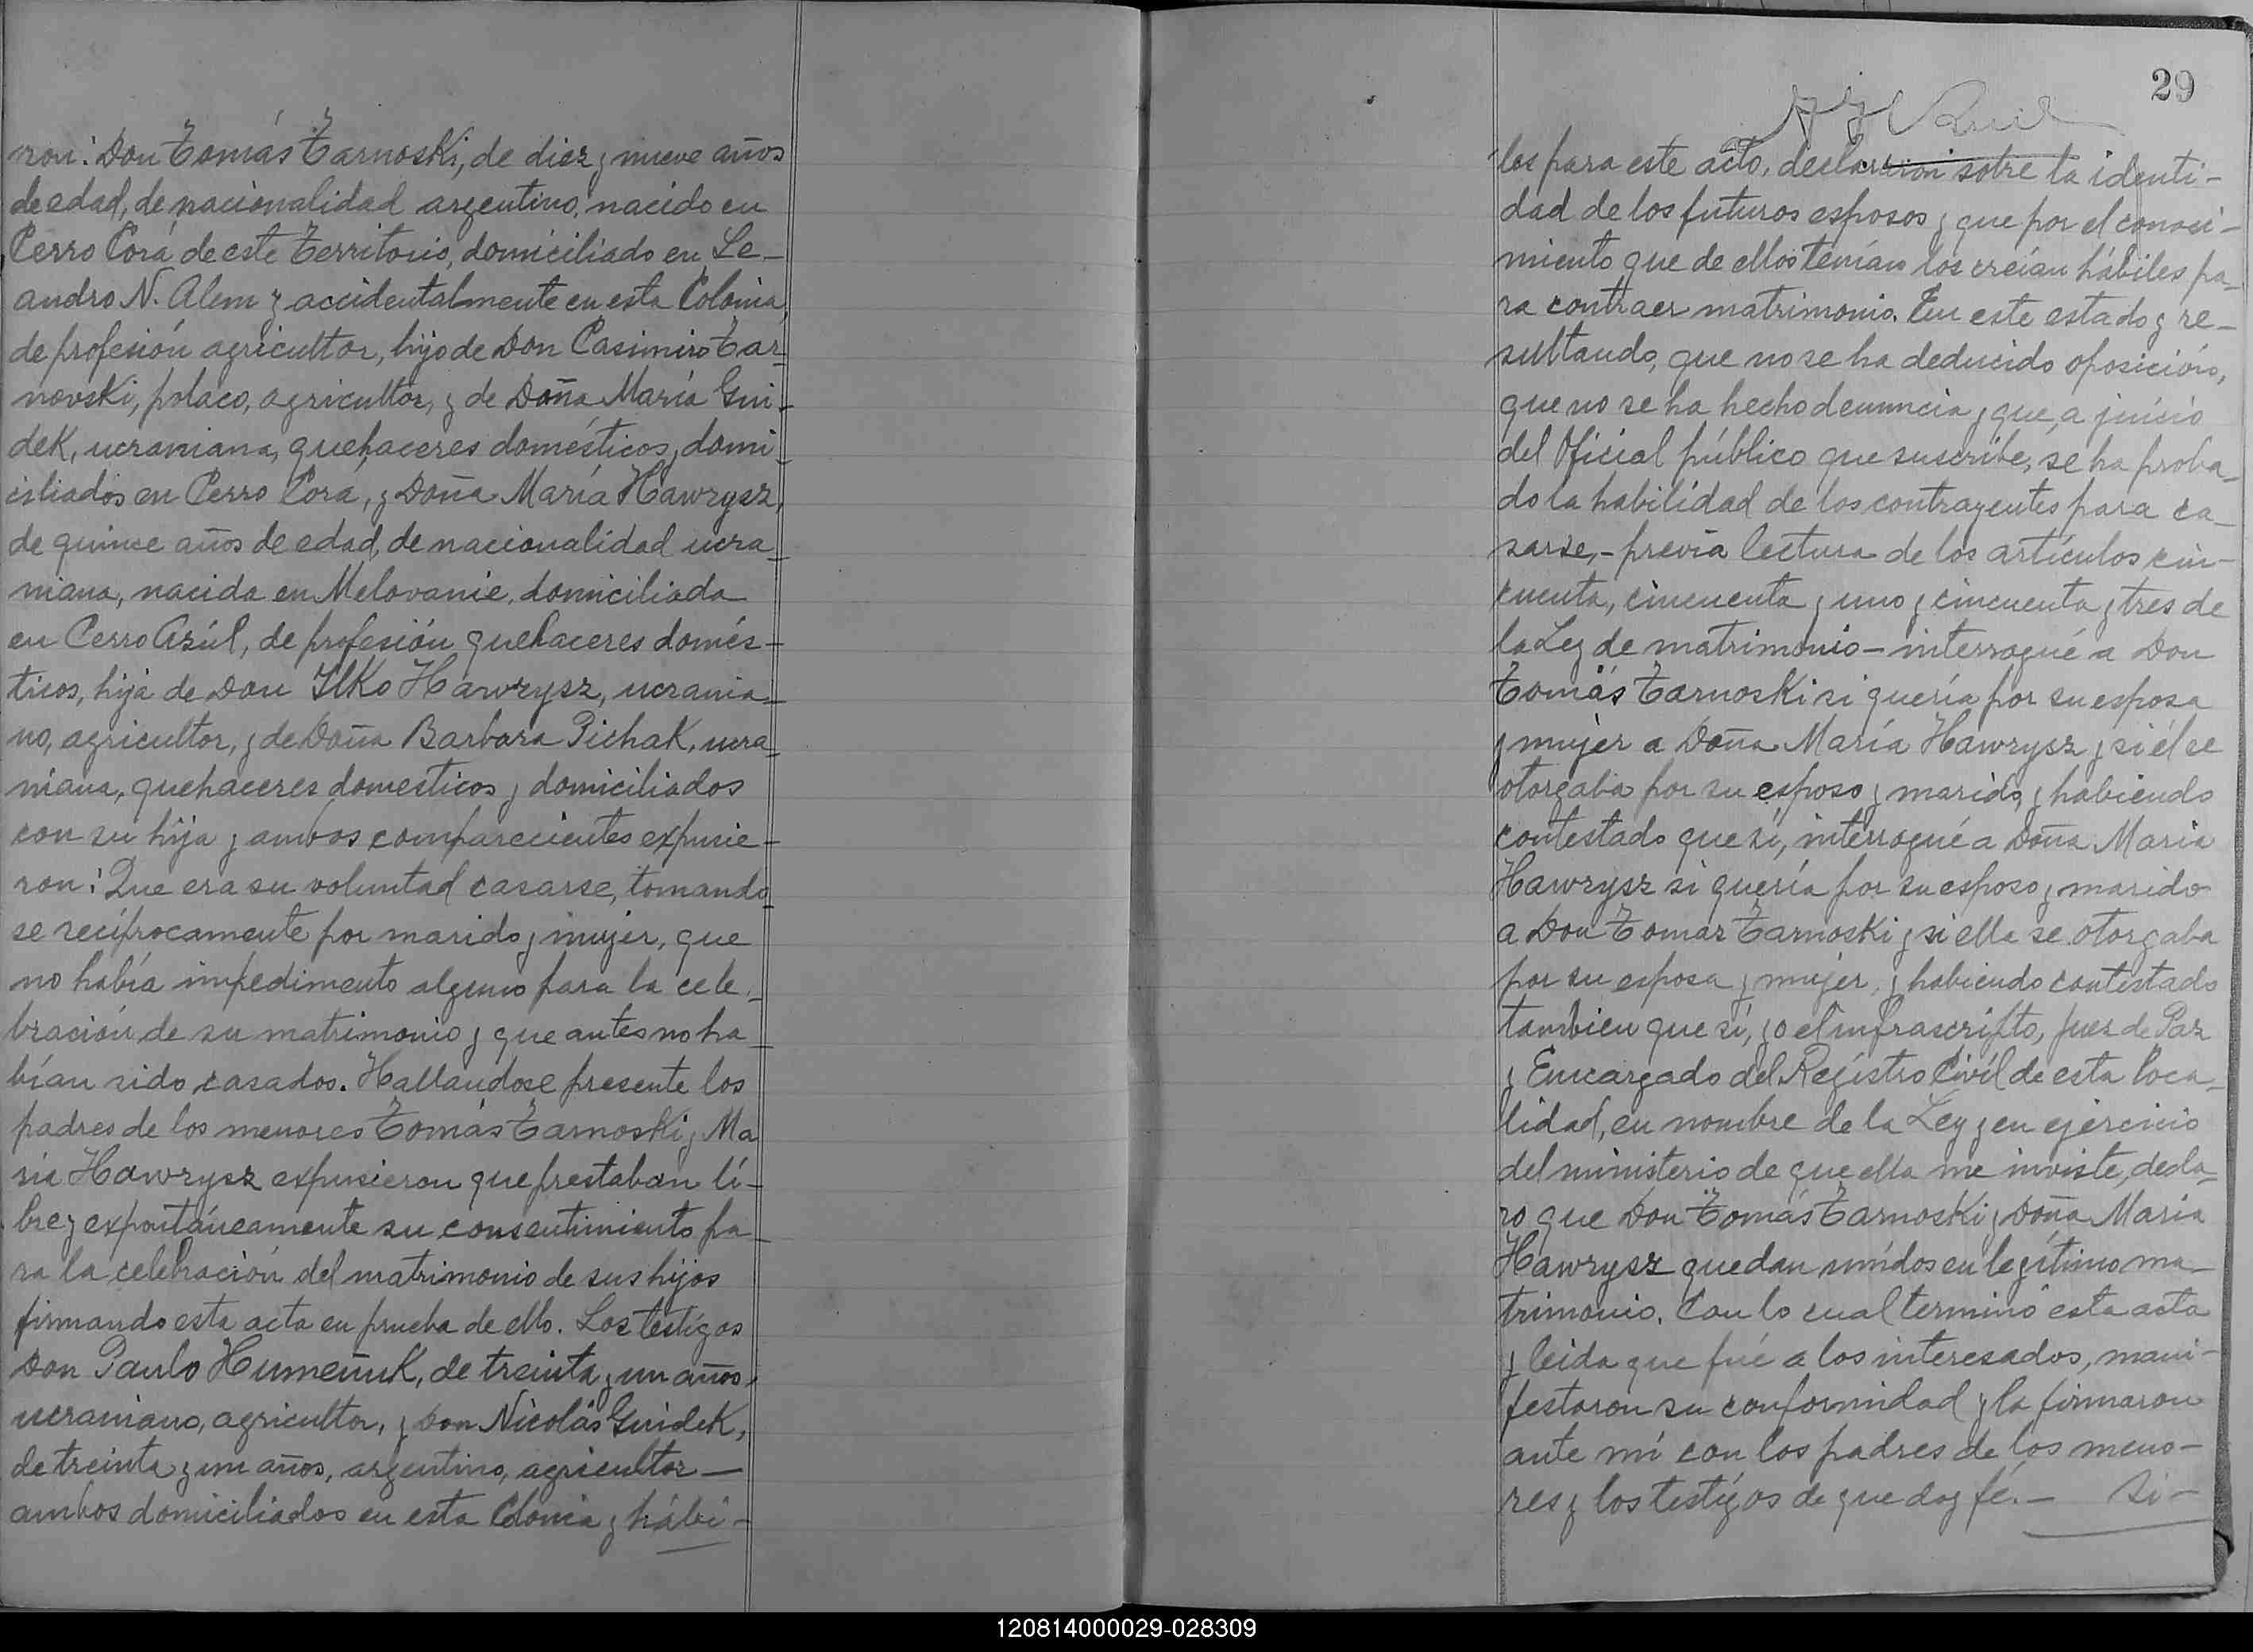 ron: Don Tomás Tarnoski, de diez y nueve años
de edad, de nacionalidad argentino, nacido en
Cerro Corá de este Territorio, domiciliado en Le-
andro N. Alem y accidentalmente en esta Colonia,
de profesión agricultor, hijo de Don Casimiro Tar-
novski, polaco, agricultor, y de Doña María Gui-
dek, ucraniana, quehaceres domésticos, domi-
ciliados en Cerro Corá, y Doña María Hawrysz,
de quince años de edad, de nacionalidad ucra-
niana, nacida en Melovanie, domiciliada
en Cerro Azúl, de profesión quehaceres domés-
ticos, hija de Don Ilko Hawrysz, ucrania-
no, agricultor, y de Doña Barbara Pichak, ucra-
niana, quehaceres domesticos y domiciliados
con su hija y ambos comparecientes expusie-
ron: Que era su voluntad casarse, tomando
se recíprocamente por marido y mujer, que
no había impedimento alguno para la cele-
bración de su matrimonio y que antes no ha-
bían sido casados. Hallandose presente los
padres de los menores Tomás Tarnoski y Ma
ria Hawrysz expusieron que prestaban lí-
bre y expontáneamente su consentimiento pa-
ra la celebración del matrimonio de sus hijos
firmando esta acta en prueba de ello. Los testigos
Don Paulo Humeñuk, de treinta y un años,
ucraniano, agricultor, y Don Nicolás Guidek,
de treinta y un años, argentino, agricultor —
ambos domiciliados en esta Colonia y hábi-
29
les para este acto, declararon sobre la identi-
dad de los futuros esposos y que por el conoci-
miento que de ellos tenían los creían hábiles pa-
ra contraer matrimonio. En este estado y re-
sultando, que no se ha deducido oposición,
que no se ha hecho denuncia y que, a juicio
del Oficial público que suscribe, se ha proba-
do la habilidad de los contrayentes para ca-
sarse,- previa lectura de los artículos cin-
cuenta, cincuenta y uno y cincuenta y tres de
la Ley de matrimonio - interrogué a Don
Tomás Tarnoski si quería por su esposa
y mujer a Doña María Hawrysz y si él se
otorgaba por su esposo y marido, y habiendo
contestado que sí, interrogué a Doña Maria
Hawrysz si quería por su esposo y marido
a Don Tomas Tarnoski y si ella se otorgaba
por su esposa y mujer, y habiendo contestado
tambien que sí, yo el infrascripto, Juez de Paz
y Encargado del Regístro Civíl de esta loca-
lidad, en nombre de la Ley y en ejercicio
del ministerio de que ella me inviste, decla-
ro que Don Tomás Tarnoski y Doña Maria
Hawrysz quedan unídos en legítimo ma-
trimonio. Con lo cual terminó esta acta
y leida que fué a los interesados, mani-
festaron su conformidad y la firmaron
ante mí con los padres de los meno-
res y los testígos de que doy fé.— Si-
120814000029-028309